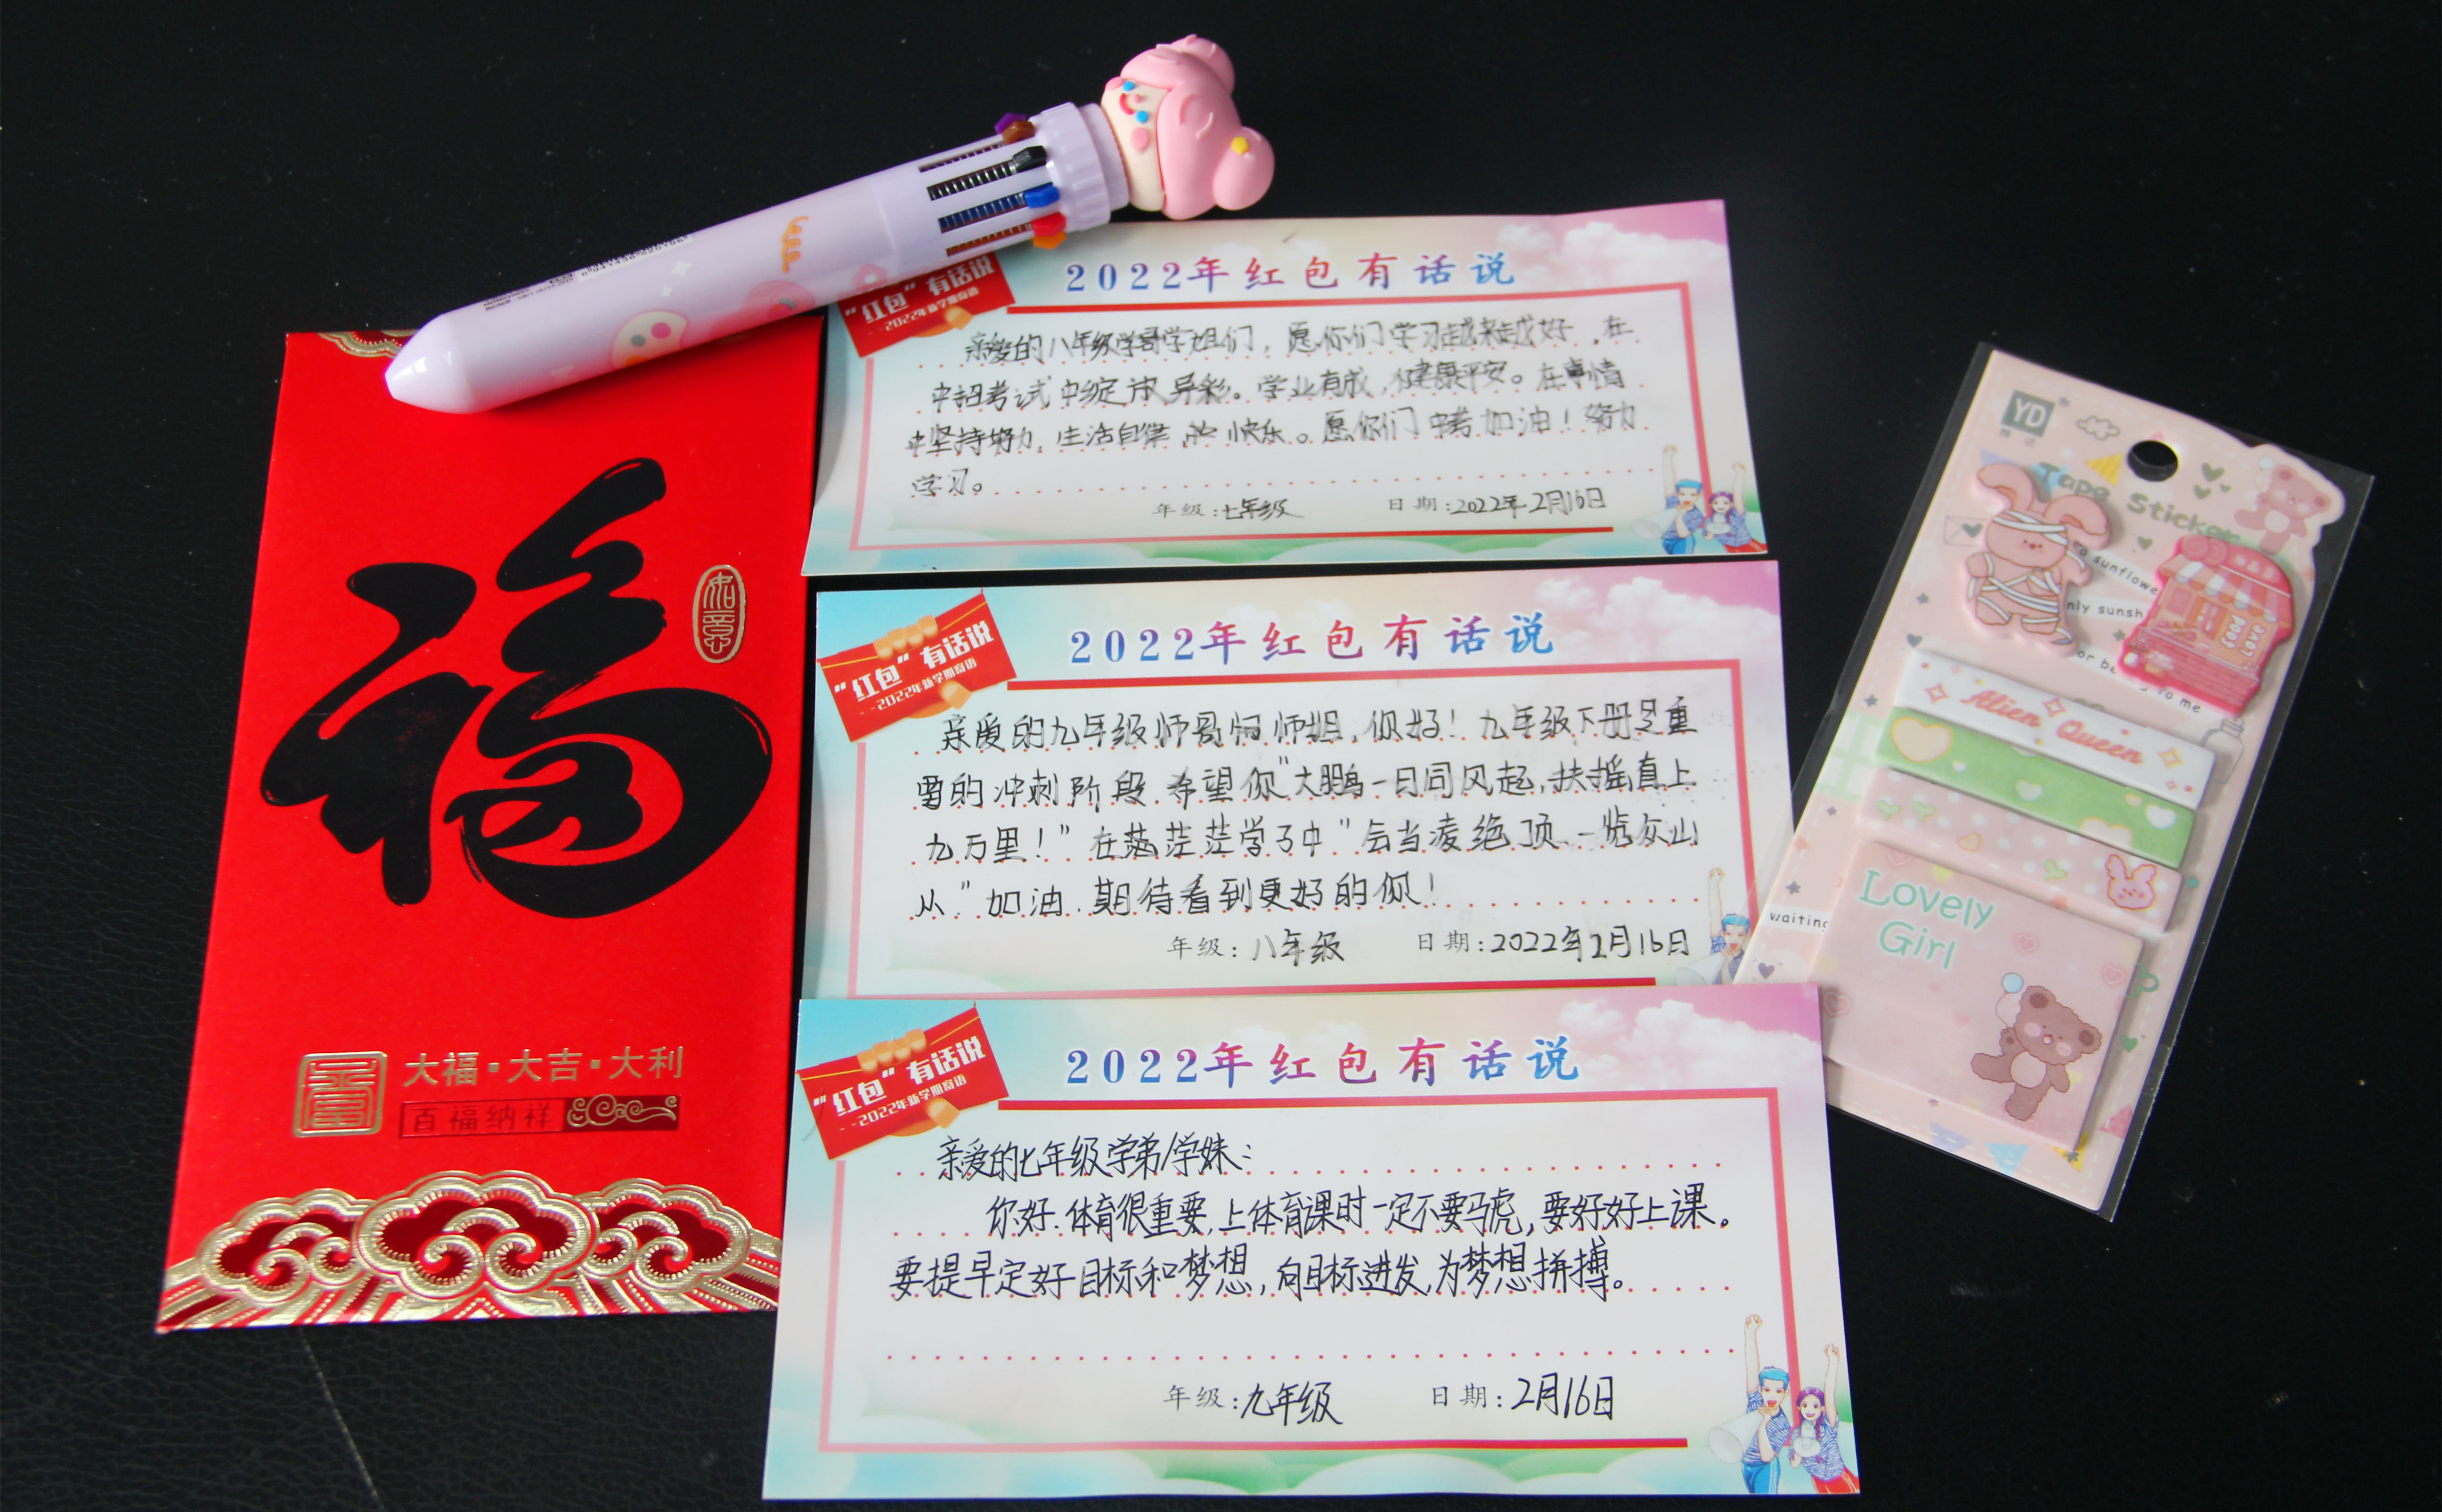 福
如意
大福·大吉·大利
百福纳祥
"红包"有话说
--2022年新学期寄语
2022年红包有话说
亲爱的八年级学哥学姐们，愿你们学习越来越好，在
中招考试中绽放异彩。学业有成，健康平安。在事情
中坚持努力，生活自律，快乐。愿你们中考加油！努力
学习。
年级：七年级 日期：2022年2月16日
"红包"有话说
--2022年新学期寄语
2022年红包有话说
亲爱的九年级师哥师姐，你好！九年级下册是重
要的冲刺阶段，希望你"大鹏一日同风起，扶摇直上
九万里！"在茫茫学子中"会当凌绝顶，一览众山
从"加油，期待看到更好的你！
年级：八年级 日期：2022年2月16日
"红包"有话说
--2022年新学期寄语
2022年红包有话说
亲爱的七年级学弟/学妹：
你好，体育很重要，上体育课时一定不要马虎，要好好上课。
要提早定好目标和梦想，向目标进发，为梦想拼搏。
年级：九年级 日期：2月16日
YD
Tape Sticker
a sunflowe
nly sunsh
to me
Alien Queen
waiting
Lovely
Girl